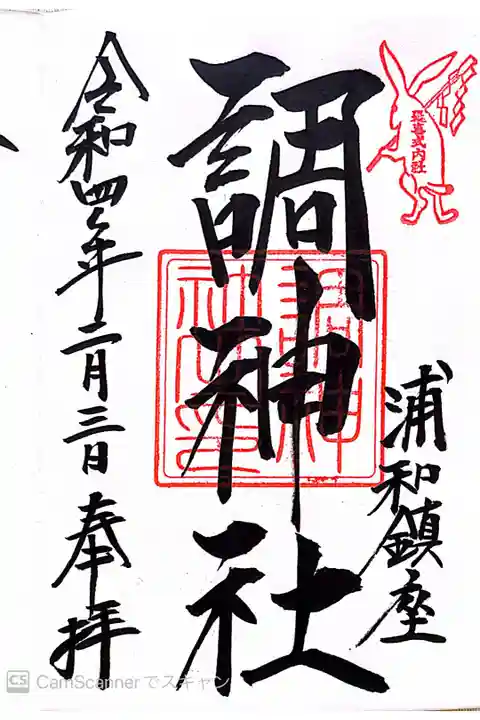 延喜式内社
浦和鎮座
調神社
令和四年二月三日奉拝
CS CamScannerでスキャン